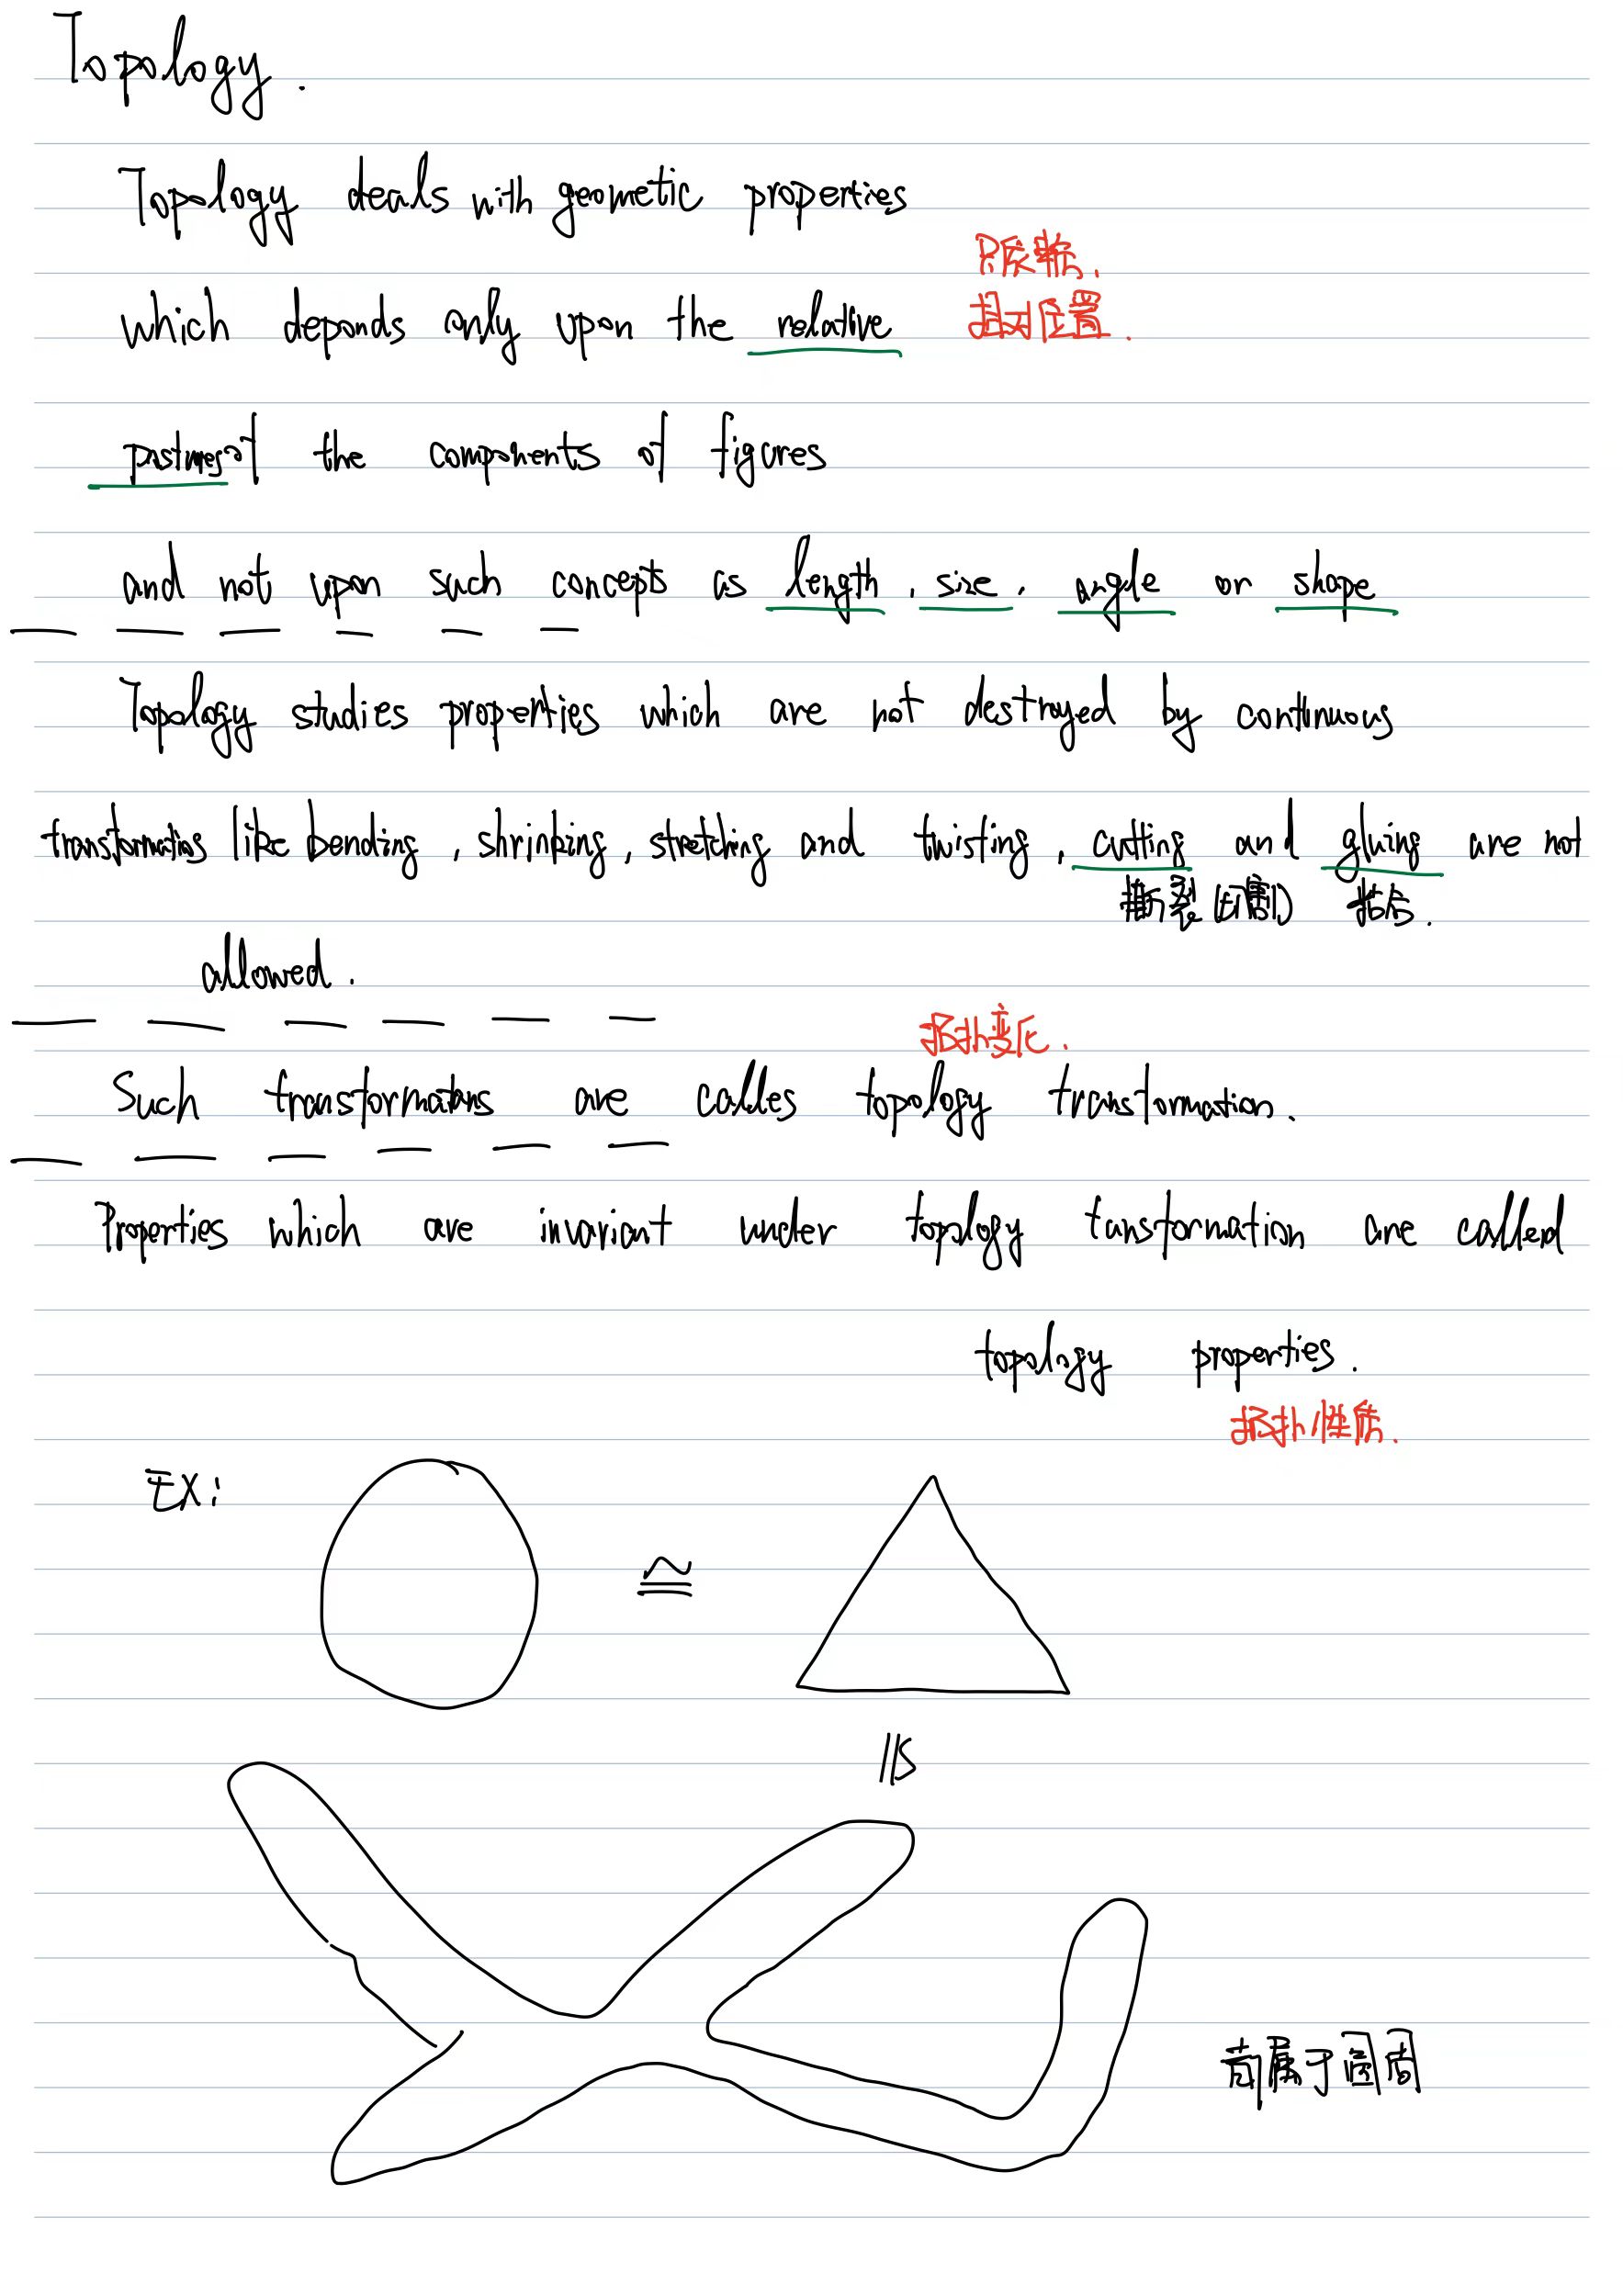 Topology.
Topology deals with geometic properties
只依赖.
相对位置.
which depends only upon the relative
of the components of figures
and not upon such concepts as length, size, angle or shape
Topology studies properties which are not destroyed by continuous
transformations like bending, shrinking, stretching and twisting, cutting and gluing are not
撕裂(切割) 粘合.
allowed.
拓扑变化.
Such transformatons are calles topology transformation.
Properties which are invariant under toplogy tansformation are called
topology properties.
拓扑性质.
EX:
≅
≅
属于圆周